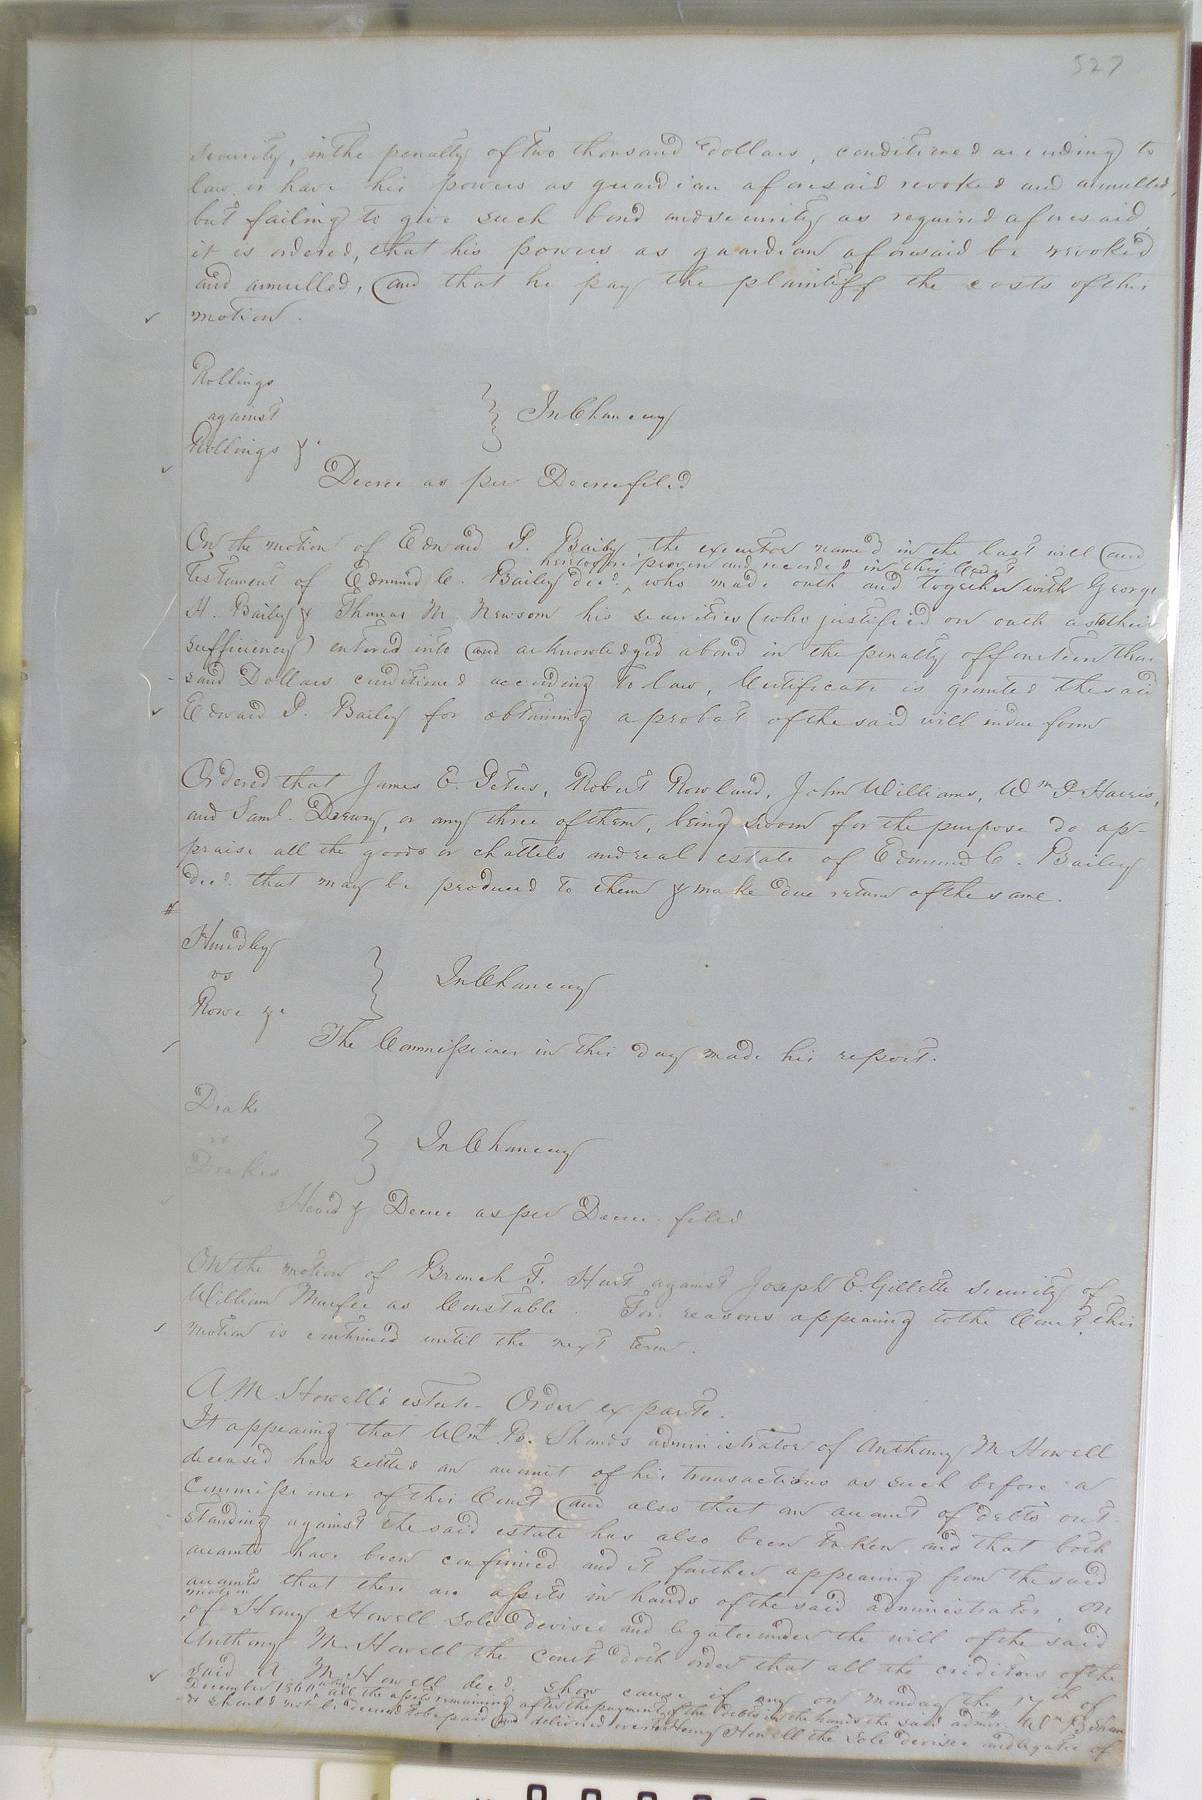 527
security, in the penalty of two thousand dollars, conditioned according to
law or have his powers as guardian aforesaid revoked and annulled,
but failing to give such bond and security as required aforesaid
it is ordered, that his powers as guardian aforesaid be revoked
and annulled, and that he pay the plaintiff the costs of this
motion.
Rollings
against
Rollings &c
In Chancery
Decree as per Decree filed
On the motion of Edward P. Bailey, the executor named in the last will and
heretofore proven and recorded in this Court
testament of Edmund C. Bailey decd. ^ who made oath and together with George
H. Bailey & Thomas M. Newsom his securities (who justified on oath as to their
sufficiency) entered into and acknowledged a bond in the penalty of fourteen thou
sand Dollars conditioned according to law, Certificate is granted the said
Edward P. Bailey for obtaining a probat of the said will in due form
Ordered that James E. Peters, Robert Rowland, John Williams, Wm P Harris,
and Saml. Drewry, or any three of them, being sworn for the purpose do ap-
praise all the goods or chattels and real estate of Edmund C. Bailey
decd. that may be produced to them & make due return of the same.
Hundley
vs
Rowe &c
In Chancery
The Commissioner in this day made his report.
Drake
vs
Drakes
In Chancery
Heard & Decree as per Decree filed
On the motion of Branch T. Hart against Joseph E. Gillette security of
William Murfee as Constable. For reasons appearing to the Court, this
motion is continued until the next term.
A. M. Howell's estate - Order ex parte.
It appearing that Wm. B. Shands administrator of Anthony M Howell
deceased has settled an account of his transactions as such before a
Commissioner of this Court and also that an account of debts out-
standing against the said estate has also been taken and that both
accounts have been confirmed and it further appearing from the said
accounts that there are assets in hands of the said administrator, on
motion
of Henry Howell sole devisee and legatee under the will of the said
Anthony M. Howell the court doth order that all the creditors of the
said A M. Howell decd. show cause if any on monday the 17th of
December 1860 all the assets remaining after the payment of the debts in the hands the said admr. Wm B Shan
ds should not be decreed to be paid and delivered over to Henry Howell the sole devisee and legatee of